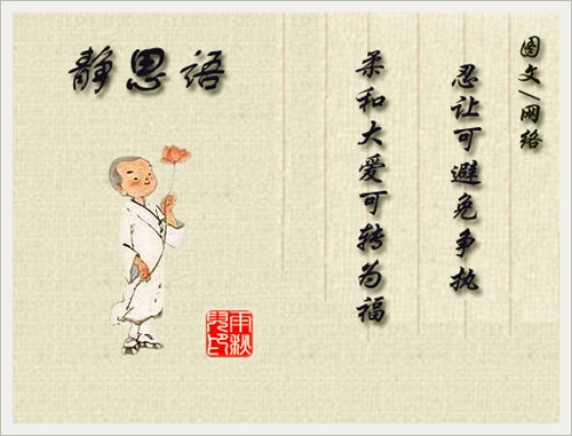 静思语
图文/网络
忍让可避免争执
柔和大爱可转为福
雨秋
儿印